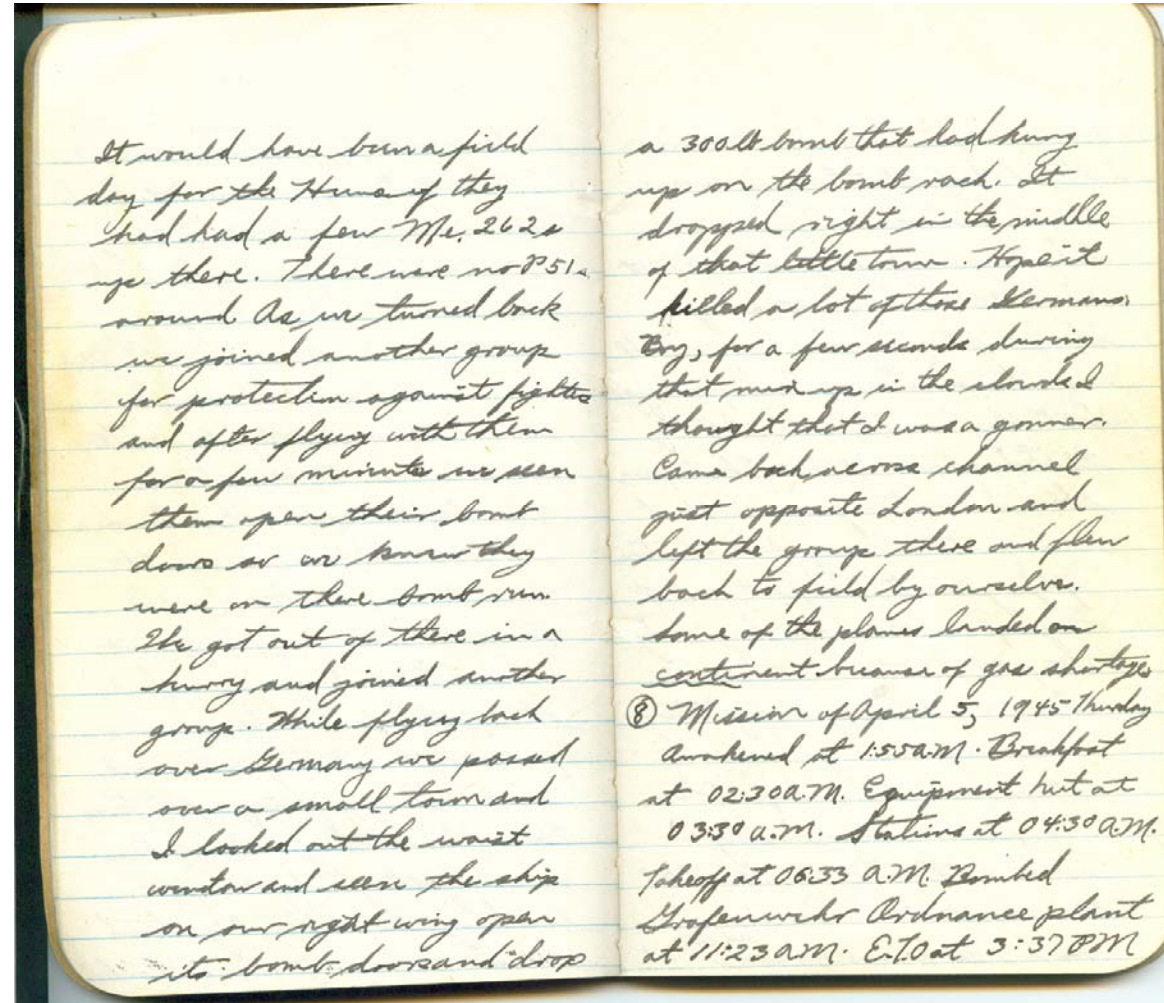 It would have been a field
day for the Huns if they
had had a few Me. 262s
up there. There were no P51s
around As we turned back
we joined another group
for protection against fighters
and after flying with them
for a few minutes we seen
them open their bomb
doors so we knew they
were on there bomb run.
We got out of there in a
hurry and joined another
group. While flying back
over Germany we passed
over a small town and
I looked out the waist
window and seen the ship
on our right wing open
its bomb doors and drop
a 300 lb bomb that had hung
up on the bomb rack. It
dropped right in the middle
of that little town. Hope it
killed a lot of those Germans.
Boy, for a few seconds during
that mix up in the clouds I
thought that I was a gonner.
Came back across channel
just opposite London and
left the group there and flew
back to field by ourselve.
Some of the planes landed on
continent because of gas shortage.
⑧ Mission of April 5, 1945 Thursday
Awakened at 1:55 A.M. Breakfast
at 02:30 A.M. Equipment hut at
03:30 A.M. Stations at 04:30 A.M.
Takeoff at 06:33 A.M. Bombed
Grafenwohr Ordnance plant
at 11:23 A.M. E.T.O at 3:37 PM